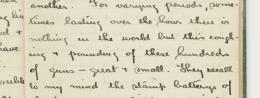 another. For varying periods, some-
times lasting over the hour there is
nothing in the world but this cough-
ing & pounding of these hundreds
of guns – great & small. They recall
to my mind the stamp batterys of